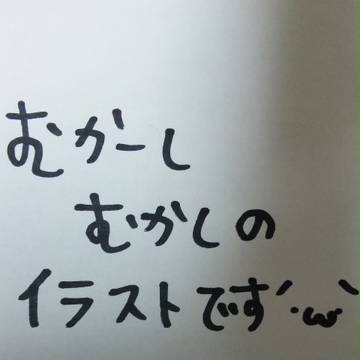 むかーし
むかしの
イラストです´･ω`